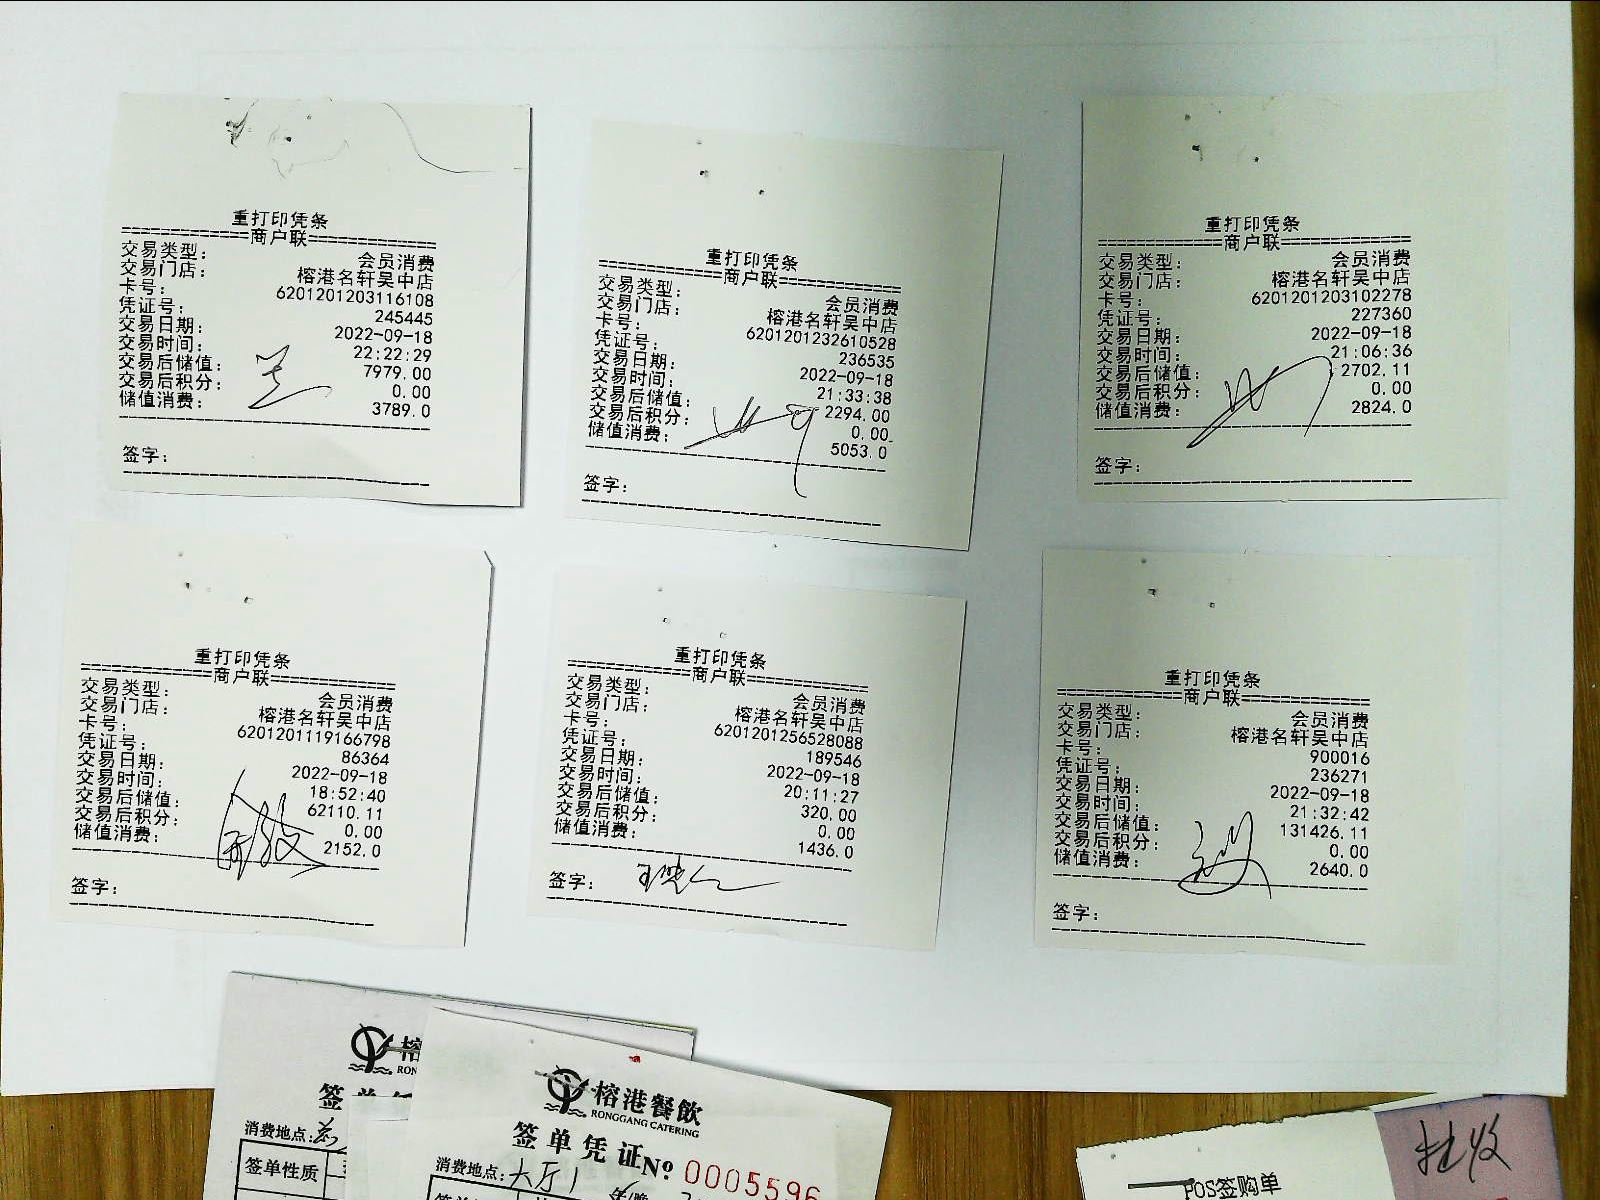 重打印凭条
============商户联============
交易类型: 会员消费
交易门店: 榕港名轩吴中店
卡号: 6201201203116108
凭证号: 245445
交易日期: 2022-09-18
交易时间: 22:22:29
交易后储值: 7979.00
交易后积分: 0.00
储值消费: 3789.0
签字:
重打印凭条
============商户联============
交易类型: 会员消费
交易门店: 榕港名轩吴中店
卡号: 6201201232610528
凭证号: 236535
交易日期: 2022-09-18
交易时间: 21:33:38
交易后储值: 2294.00
交易后积分: 0.00
储值消费: 5053.0
签字:
重打印凭条
============商户联============
交易类型: 会员消费
交易门店: 榕港名轩吴中店
卡号: 6201201203102278
凭证号: 227360
交易日期: 2022-09-18
交易时间: 21:06:36
交易后储值: 2702.11
交易后积分: 0.00
储值消费: 2824.0
签字:
重打印凭条
============商户联============
交易类型: 会员消费
交易门店: 榕港名轩吴中店
卡号: 6201201119166798
凭证号: 86364
交易日期: 2022-09-18
交易时间: 18:52:40
交易后储值: 62110.11
交易后积分: 0.00
储值消费: 2152.0
签字:
重打印凭条
============商户联============
交易类型: 会员消费
交易门店: 榕港名轩吴中店
卡号: 6201201256528088
凭证号: 189546
交易日期: 2022-09-18
交易时间: 20:11:27
交易后储值: 320.00
交易后积分: 0.00
储值消费: 1436.0
签字:
重打印凭条
============商户联============
交易类型: 会员消费
交易门店: 榕港名轩吴中店
卡号: 900016
凭证号: 236271
交易日期: 2022-09-18
交易时间: 21:32:42
交易后储值: 131426.11
交易后积分: 0.00
储值消费: 2640.0
签字:
榕
RON
签单
消费地点:
签单性质
榕港餐飲
RONGGANG CATERING
签单凭证 No 0005596
消费地点: 大厅1
POS签购单